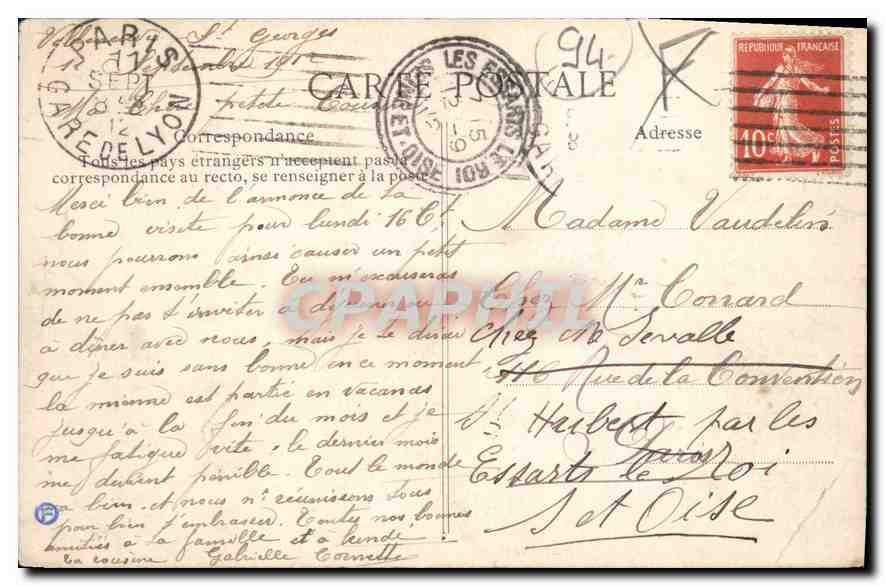 Villeneuve St Georges
12 Septembre 1912
Ma Chère petite Cousine
PARIS
17
SEPT
12
GARE DE LYON
LES ESSARTS LE ROI
SEINE-ET-OISE
94
CARTE POSTALE
RÉPUBLIQUE FRANÇAISE
10c
POSTES
Correspondance
Adresse
Tous les pays étrangers n'acceptent pas la
correspondance au recto, se renseigner à la poste
Merci bien de l'annonce de ta
bonne visite pour lundi 16 Ct
nous pourrons ainsi causer un petit
moment ensemble. Tu m'excuseras
de ne pas t'inviter à déjeuner ou
à dîner avec nous, mais je te dirai
que je suis sans bonne en ce moment
la mienne est partie en vacances
jusqu'à la fin du mois et je
me fatigue vite, le dernier mois
me devient pénible. Tout le monde
va bien et nous n/ réunissons tous
pour bien t'embrasser. Toutes nos bonnes
amitiés à ta famille et a
ta cousine Gabrielle Cornette
Madame Vaudelin
Chez Mr Conrard
chez M Sevalle
116 Rue de la Convention
St Hubert par les
Paris
Essarts le Roi
S et Oise
CPAPHIL